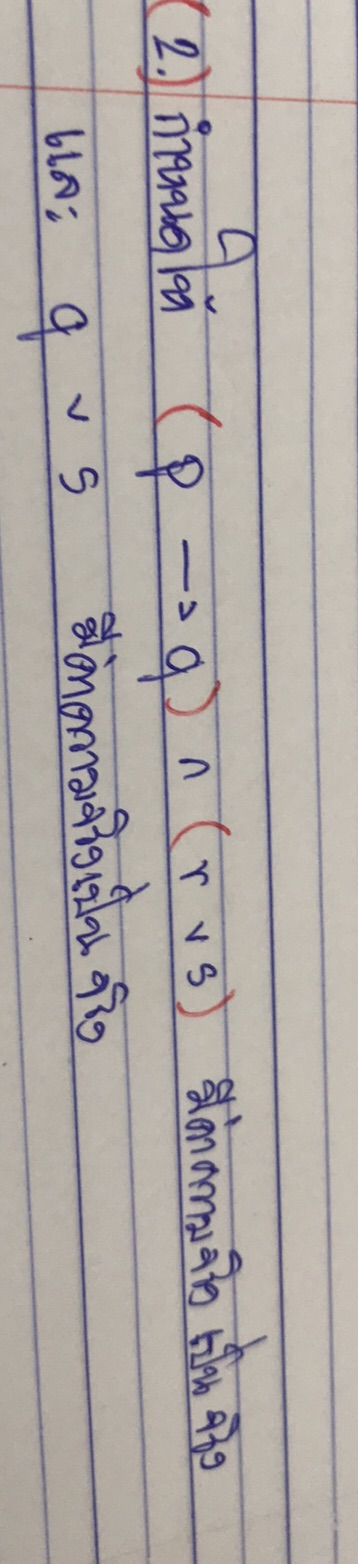 (2.) กำหนดให้ (p → q) ∧ (r ∨ s) มีค่าความจริง เป็น จริง
และ q ∨ s มีค่าความจริงเป็น จริง